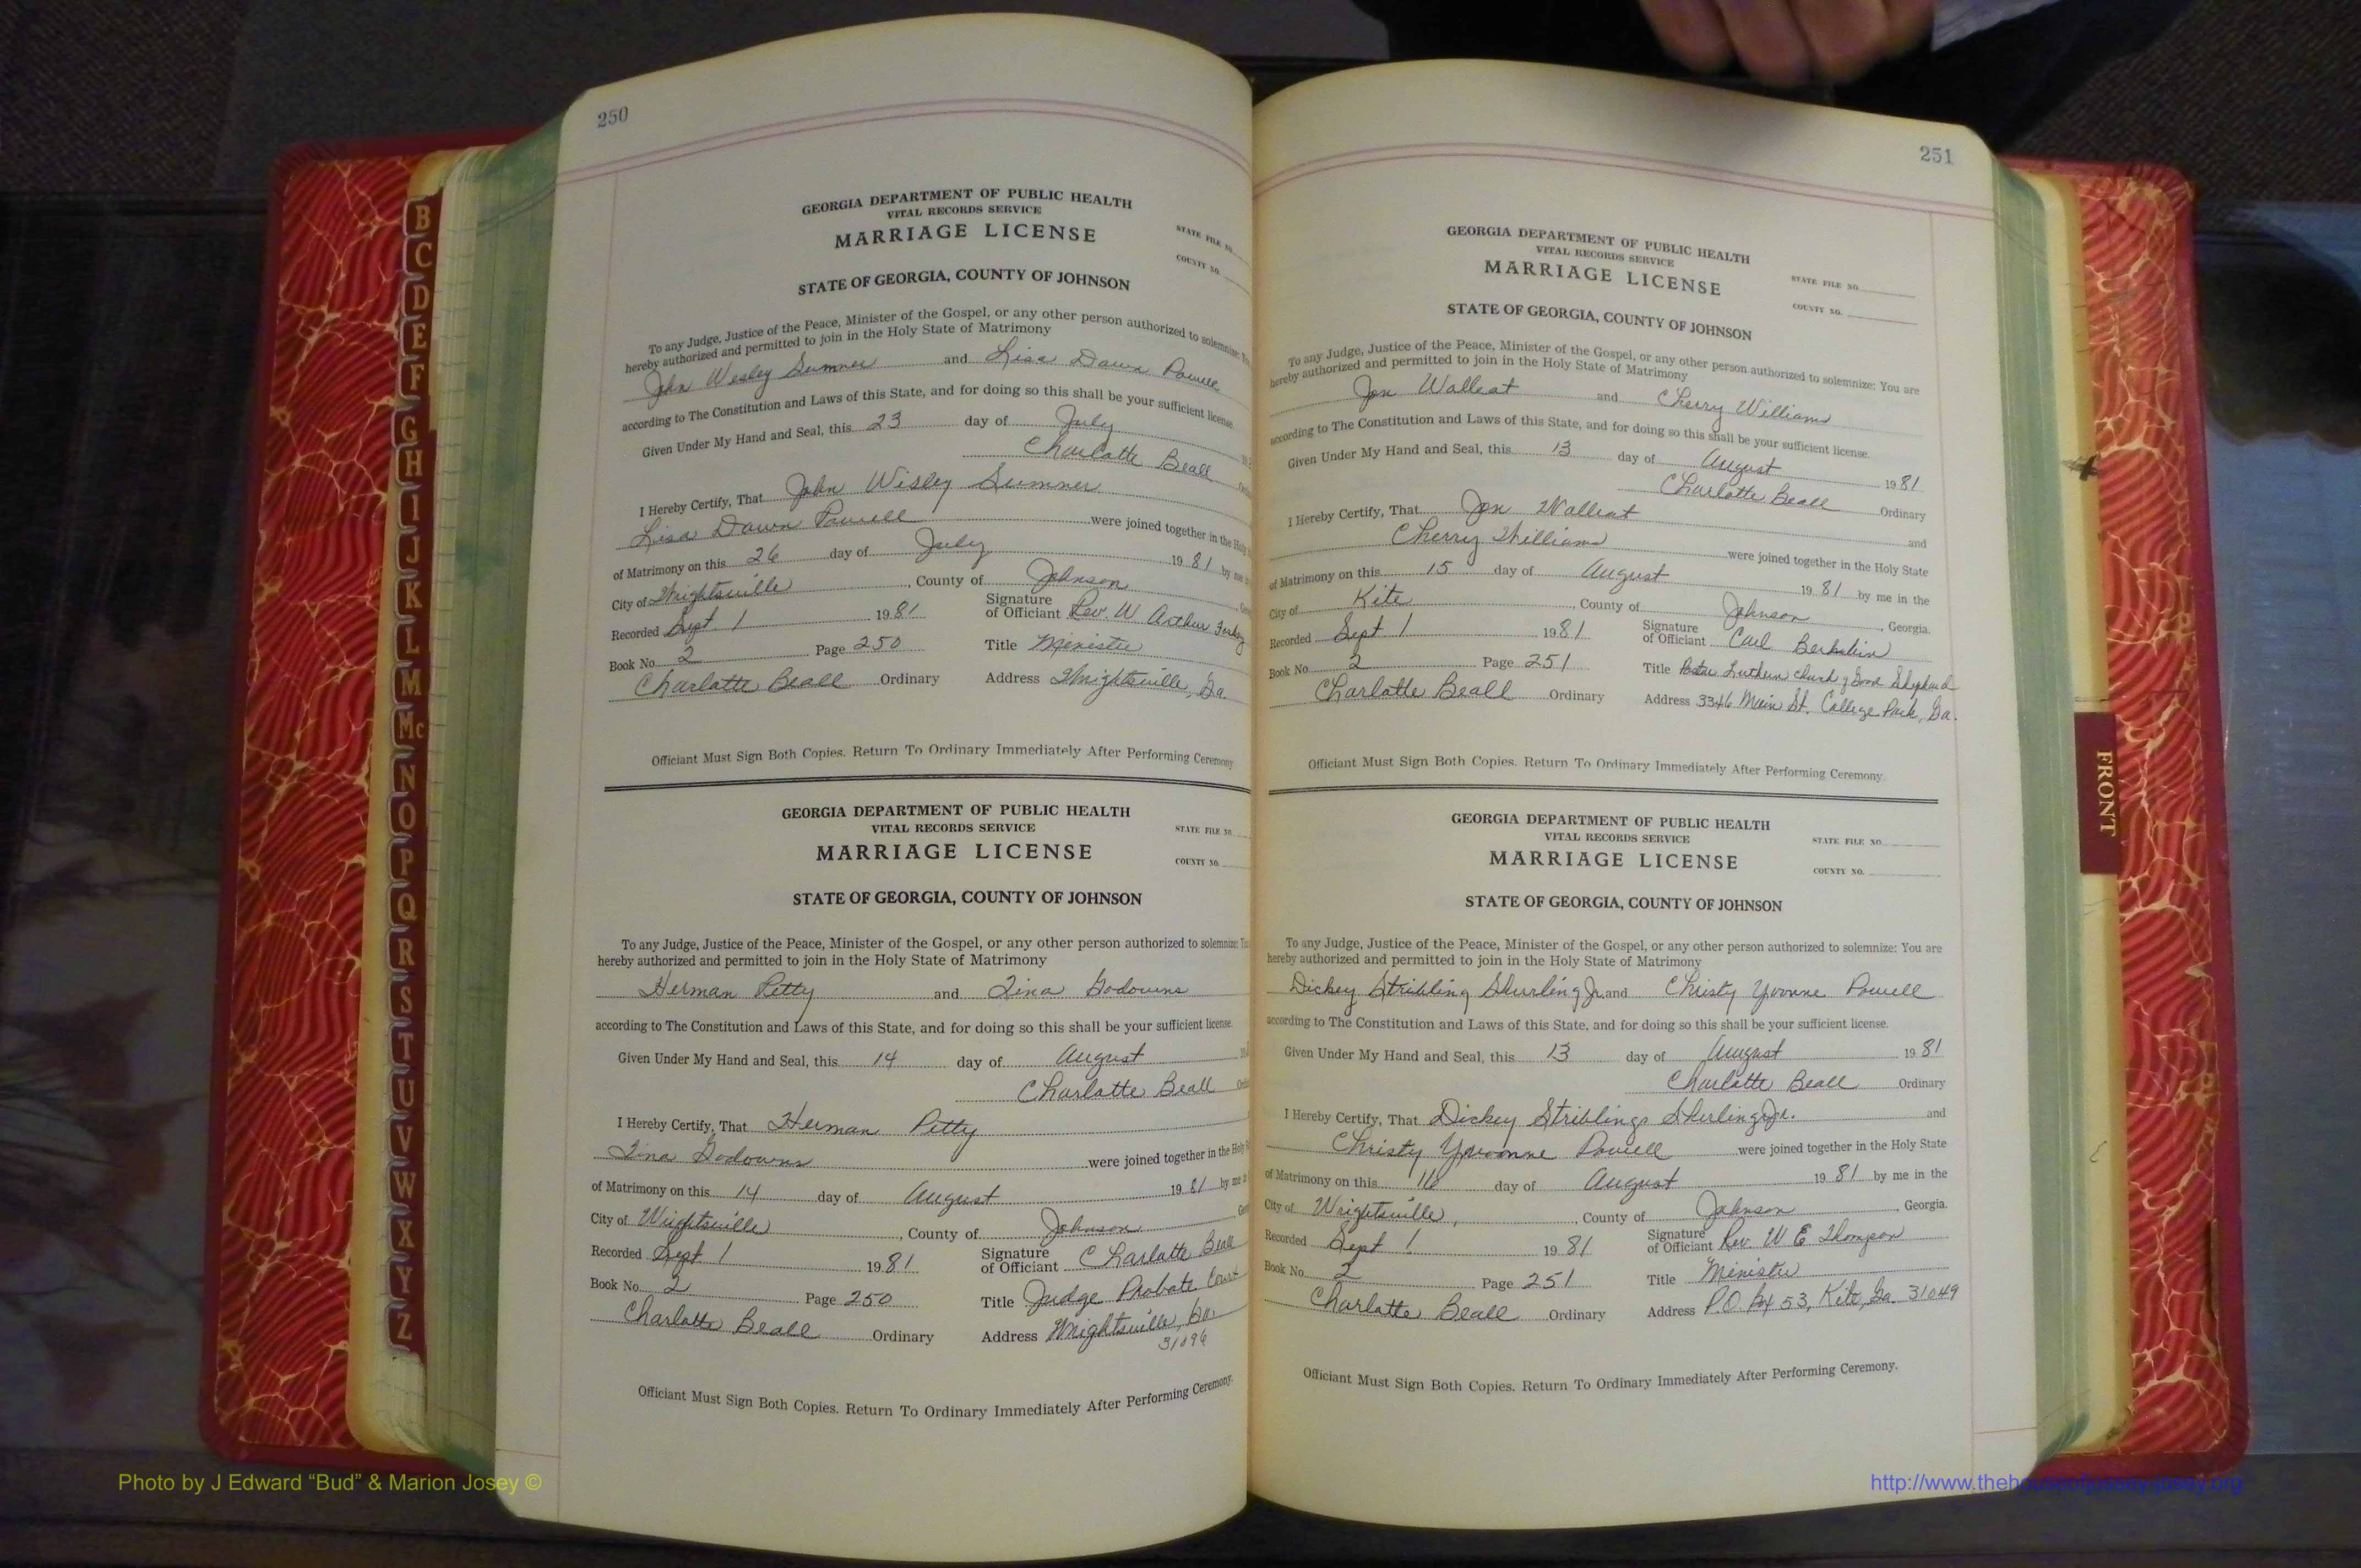 250
GEORGIA DEPARTMENT OF PUBLIC HEALTH
VITAL RECORDS SERVICE
MARRIAGE LICENSE
STATE FILE NO.
COUNTY NO.
STATE OF GEORGIA, COUNTY OF JOHNSON
To any Judge, Justice of the Peace, Minister of the Gospel, or any other person authorized to solemnize:
hereby authorized and permitted to join in the Holy State of Matrimony
John Wesley Sumner and Lisa Dawn Powell
according to The Constitution and Laws of this State, and for doing so this shall be your sufficient license.
Given Under My Hand and Seal, this 23 day of July
Charlotte Beall
I Hereby Certify, That John Wisley Sumner
Lisa Dawn Powell were joined together in the Holy
of Matrimony on this 26 day of July 1981 by me
City of Wrightsville, County of Johnson
Recorded Sept. 1 1981 Signature of Officiant Rev. W Arthur
Book No. 2 Page 250 Title Minister
Charlotte Beall Ordinary Address Wrightsville, Ga.
Officiant Must Sign Both Copies. Return To Ordinary Immediately After Performing Ceremony
GEORGIA DEPARTMENT OF PUBLIC HEALTH
VITAL RECORDS SERVICE
MARRIAGE LICENSE
STATE FILE NO.
COUNTY NO.
STATE OF GEORGIA, COUNTY OF JOHNSON
To any Judge, Justice of the Peace, Minister of the Gospel, or any other person authorized to solemnize:
hereby authorized and permitted to join in the Holy State of Matrimony
Herman Petty and Tina Godowns
according to The Constitution and Laws of this State, and for doing so this shall be your sufficient license.
Given Under My Hand and Seal, this 14 day of August
Charlotte Beall
I Hereby Certify, That Herman Petty
Tina Godowns were joined together in the Holy
of Matrimony on this 14 day of August 1981 by me
City of Wrightsville, County of Johnson
Recorded Sept 1 1981 Signature of Officiant Charlotte Beall
Book No. 2 Page 250 Title Judge Probate Court
Charlotte Beall Ordinary Address Wrightsville, Ga.
31096
Officiant Must Sign Both Copies. Return To Ordinary Immediately After Performing Ceremony.
251
GEORGIA DEPARTMENT OF PUBLIC HEALTH
VITAL RECORDS SERVICE
MARRIAGE LICENSE
STATE FILE NO.
COUNTY NO.
STATE OF GEORGIA, COUNTY OF JOHNSON
To any Judge, Justice of the Peace, Minister of the Gospel, or any other person authorized to solemnize: You are
hereby authorized and permitted to join in the Holy State of Matrimony
Jon Walleat and Cherry William
according to The Constitution and Laws of this State, and for doing so this shall be your sufficient license.
Given Under My Hand and Seal, this 13 day of August 1981
Charlotte Beall Ordinary
I Hereby Certify, That Jon Walleat and
Cherry William were joined together in the Holy State
of Matrimony on this 15 day of August 1981 by me in the
City of Kite, County of Johnson, Georgia.
Recorded Sept 1 1981 Signature of Officiant Carl
Book No. 2 Page 251 Title Pastor Luthern Church of Good Shephard
Charlotte Beall Ordinary Address 3346 Main St. College Park, Ga.
Officiant Must Sign Both Copies. Return To Ordinary Immediately After Performing Ceremony.
GEORGIA DEPARTMENT OF PUBLIC HEALTH
VITAL RECORDS SERVICE
MARRIAGE LICENSE
STATE FILE NO.
COUNTY NO.
STATE OF GEORGIA, COUNTY OF JOHNSON
To any Judge, Justice of the Peace, Minister of the Gospel, or any other person authorized to solemnize: You are
hereby authorized and permitted to join in the Holy State of Matrimony
Dickey Stribling Shurling Jr. and Christy Yvonne Powell
according to The Constitution and Laws of this State, and for doing so this shall be your sufficient license.
Given Under My Hand and Seal, this 13 day of August 1981
Charlotte Beall Ordinary
I Hereby Certify, That Dickey Striblings Sherling Jr. and
Christy Yvonne Powell were joined together in the Holy State
of Matrimony on this 16 day of August 1981 by me in the
City of Wrightsville, County of Johnson, Georgia.
Recorded Sept 1 1981 Signature of Officiant Rev W E Thompson
Book No. 2 Page 251 Title Minister
Charlotte Beall Ordinary Address P.O. Box 53, Kite, Ga. 31049
Officiant Must Sign Both Copies. Return To Ordinary Immediately After Performing Ceremony.
B
C
D
E
F
G
H
I
J
K
L
M
Mc
N
O
P
Q
R
S
T
U
V
W
X
Y
Z
FRONT
Photo by J Edward “Bud” & Marion Josey ©
http://www.thehouseofjossey-josey.org